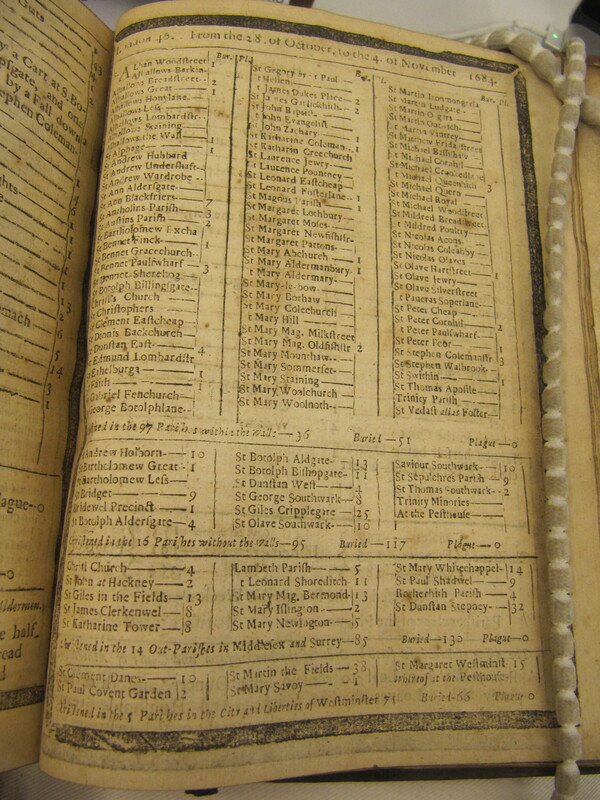 From the 28. of October, to the 4. of November 1684.
Bur. Pl.
Alban Woodstreet
Alhallows Barkin 1
Alhallows Breadstreet 2
Alhallows Great 1
Alhallows Honylane
Alhallows Less
Alhallows Lombardstr
Alhallows Staining
Alhallows the Wall 1
St Alphage 1
St Andrew Hubbard
St Andrew Undershaft
St Andrew Wardrobe
St Ann Aldersgate
St Ann Blackfriers 7
St Antholins Parish 3
St Austins Parish 2
St Bartholomew Excha
St Bennet Finck 1
St Bennet Gracechurch
St Bennet Paulswharf 3
St Bennet Sherehog
St Botolph Billingsgate
Christs Church
St Christophers
St Clement Eastcheap
St Dionis Backchurch
St Dunstan East 4
St Edmund Lombardstr
St Ethelburga 1
St Faith 1
St Gabriel Fenchurch
St George Botolphlane
St Gregory by St Paul
St Hellen
St James Dukes Place 2
St James Garlickhith 2
St John Baptist
St John Evangelist
St John Zachary
St Katharine Coleman 1
St Katharin Creechurch
St Laurence Jewry
St Laurence Pountney
St Leonard Eastcheap
St Leonard Fosterlane 1
St Magnus Parish 1
St Margaret Lothbury
St Margaret Moses
St Margaret Newfishstr
St Margaret Pattons
St Mary Abchurch 1
St Mary Aldermanbury 1
St Mary Aldermary
St Mary-le-bow
St Mary Bothaw
St Mary Colechurch
St Mary Hill
St Mary Mag. Milkstreet
St Mary Mag. Oldfishstr 2
St Mary Mounthaw
St Mary Sommerset
St Mary Staining
St Mary Woolchurch
St Mary Woolnoth
Bur. Pl.
St Martin Ironmongerla
St Martin Ludgate
St Martin Orgars
St Martin Outwich
St Martin Vintrey
St Matthew Fridaystreet
St Michael Bassishaw
St Michael Cornhil
St Michael Crookedlane
St Michael Queenhith 3
St Michael Quern
St Michael Royal
St Michael Woodstreet
St Mildred Breadstreet
St Mildred Poultry
St Nicolas Acons
St Nicolas Coleabby
St Nicolas Olaves
St Olave Hartstreet 1
St Olave Jewry
St Olave Silverstreet
St Pancras Soperlane
St Peter Cheap
St Peter Cornhil 2
St Peter Paulswharf
St Peter Poor 1
St Stephen Colemanstr 3
St Stephen Walbrook
St Swithin 1
St Thomas Apostle
Trinity Parish
St Vedast alias Foster
Christened in the 97 Parishes within the walls 36 Buried 51 Plague 0
St Andrew Holborn 10
St Bartholomew Great 1
St Bartholomew Less
St Bridget 9
Bridewel Precinct 1
St Botolph Aldersgate 4
St Botolph Aldgate 13
St Botolph Bishopgate 11
St Dunstan West 4
St George Southwark 8
St Giles Cripplegate 25
St Olave Southwark 10
Saviour Southwark 10
St Sepulchres Parish 9
St Thomas Southwark 2
Trinity Minories
At the Pesthouse
Christened in the 16 Parishes without the walls 95 Buried 117 Plague 0
Christ Church 4
St John at Hackney 2
St Giles in the Fields 13
St James Clerkenwel 8
St Katharine Tower 8
Lambeth Parish 5
St Leonard Shoreditch 11
St Mary Mag. Bermond 13
St Mary Islington 2
St Mary Newington 5
St Mary Whitechappel 14
St Paul Shadwel 9
Rotherhith Parish 4
St Dunstan Stepney 32
Christened in the 14 Out-Parishes in Middlesex and Surrey 85 Buried 130 Plague 0
St Clement Danes 10
St Paul Covent Garden 2
St Martin the Fields 38
St Mary Savoy 1
St Margaret Westminst 15
whereof at the Pesthouse
Christened in the 5 Parishes in the City and Liberties of Westminster 71 Buried 66 Plague 0